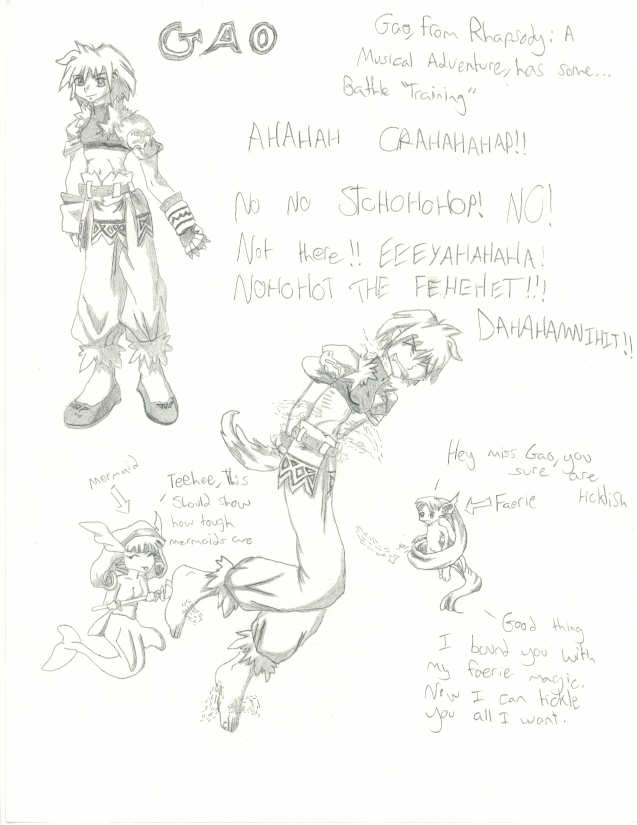 GAO
Gao, from Rhapsody: A
Musical Adventure, has some...
Battle "Training"
AHAHAH CRAHAHAHAP!!
No No STOHOHOHOP! NO!
Not there!! EEEYAHAHAHA!
NOHOHOT THE FEHEHEET!!!
DAHAHAMNIHIT!!
mermaid
Teehee, this
Should show
how tough
mermaids are
Hey miss Gao, you
sure are
ticklish
Faerie
Good thing
I bound you with
my faerie magic.
Now I can tickle
you all I want.